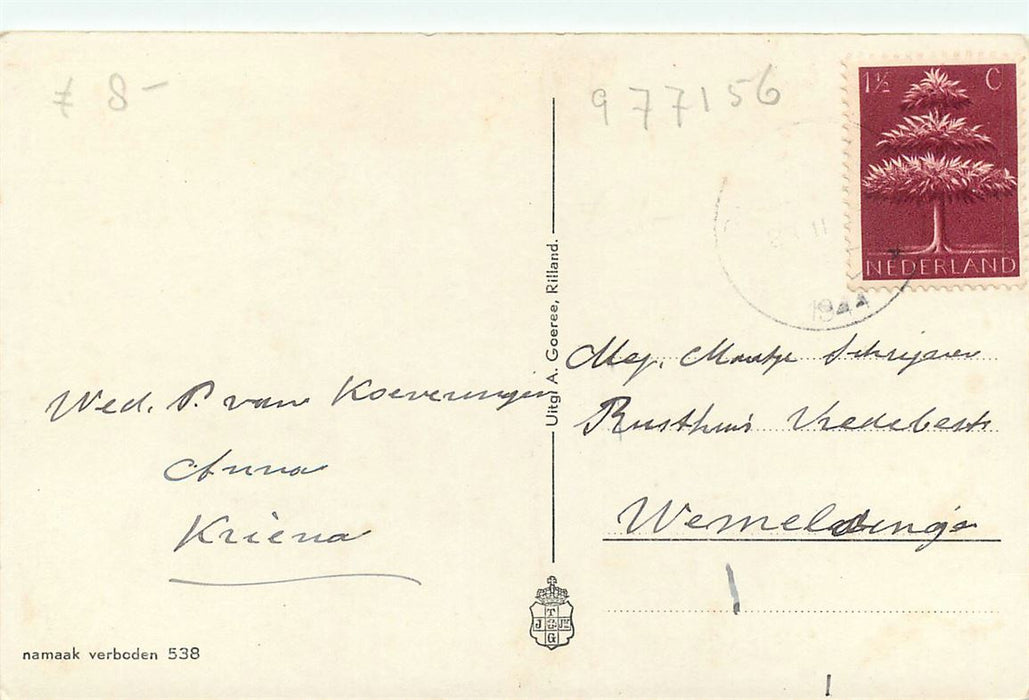 f 8 -
977156
1½ C
NEDERLAND
11
1944
Uitg. A. Goeree, Rilland.
Mej. Maatje Schrijver
Rusthuis Vredebest
Wemeldinge
Wed. P. van Koeveringen
Anna
Kriena
T
J M
G
namaak verboden 538